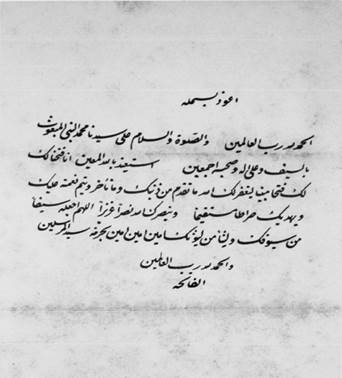 اعوذ بسمله
الحمد لله رب العالمين والصلوة والسلام على سيدنا محمد النبى المبعوث
بالسيف وعلى اله وصحبه اجمعين استعيذ بالله المعين انا فتحنا لك
لك فتحا مبينا ليغفر لك الله ما تقدم من ذنبك وما تأخر ويتم نعمته عليك
ويهديك صراطا مستقيما وينصرك الله نصرا عزيزا اللهم اجعله سيفا
من سيوفك امين امين امين بحرمة سيد المرسلين
والحمد لله رب العالمين
الفاتحه